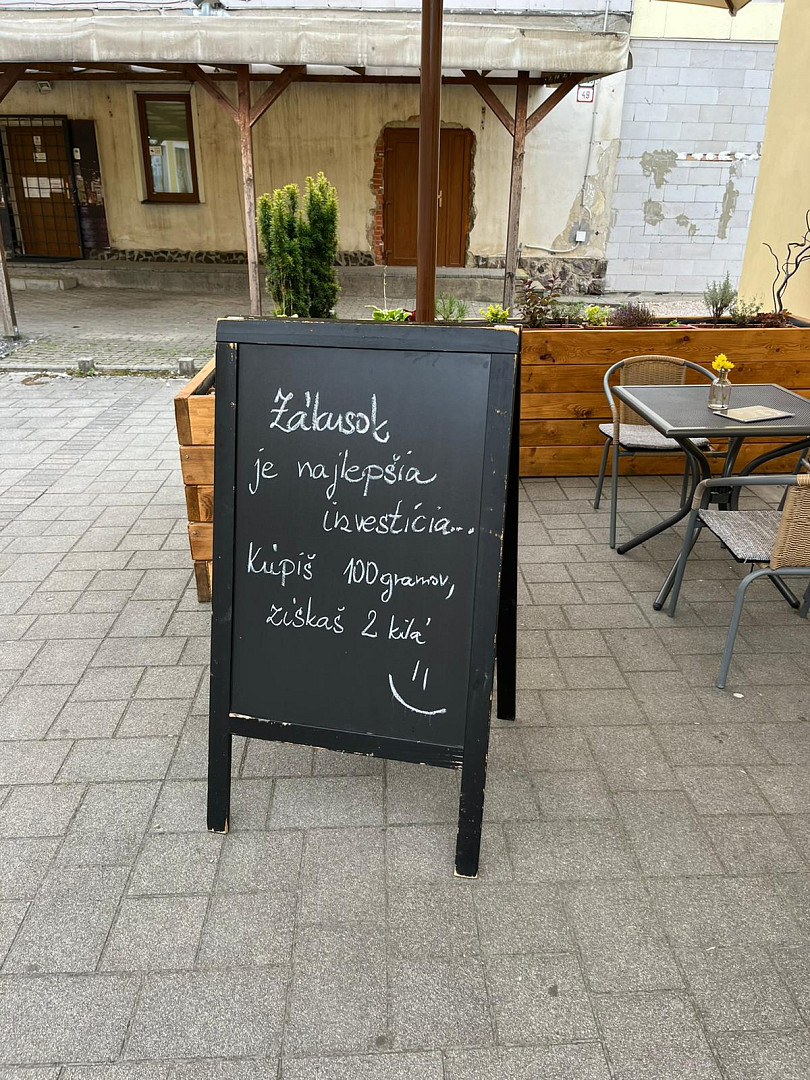 Zákusok
je najlepšia
investícia...
Kúpiš 100 gramov,
ziškaš 2 kilá
49